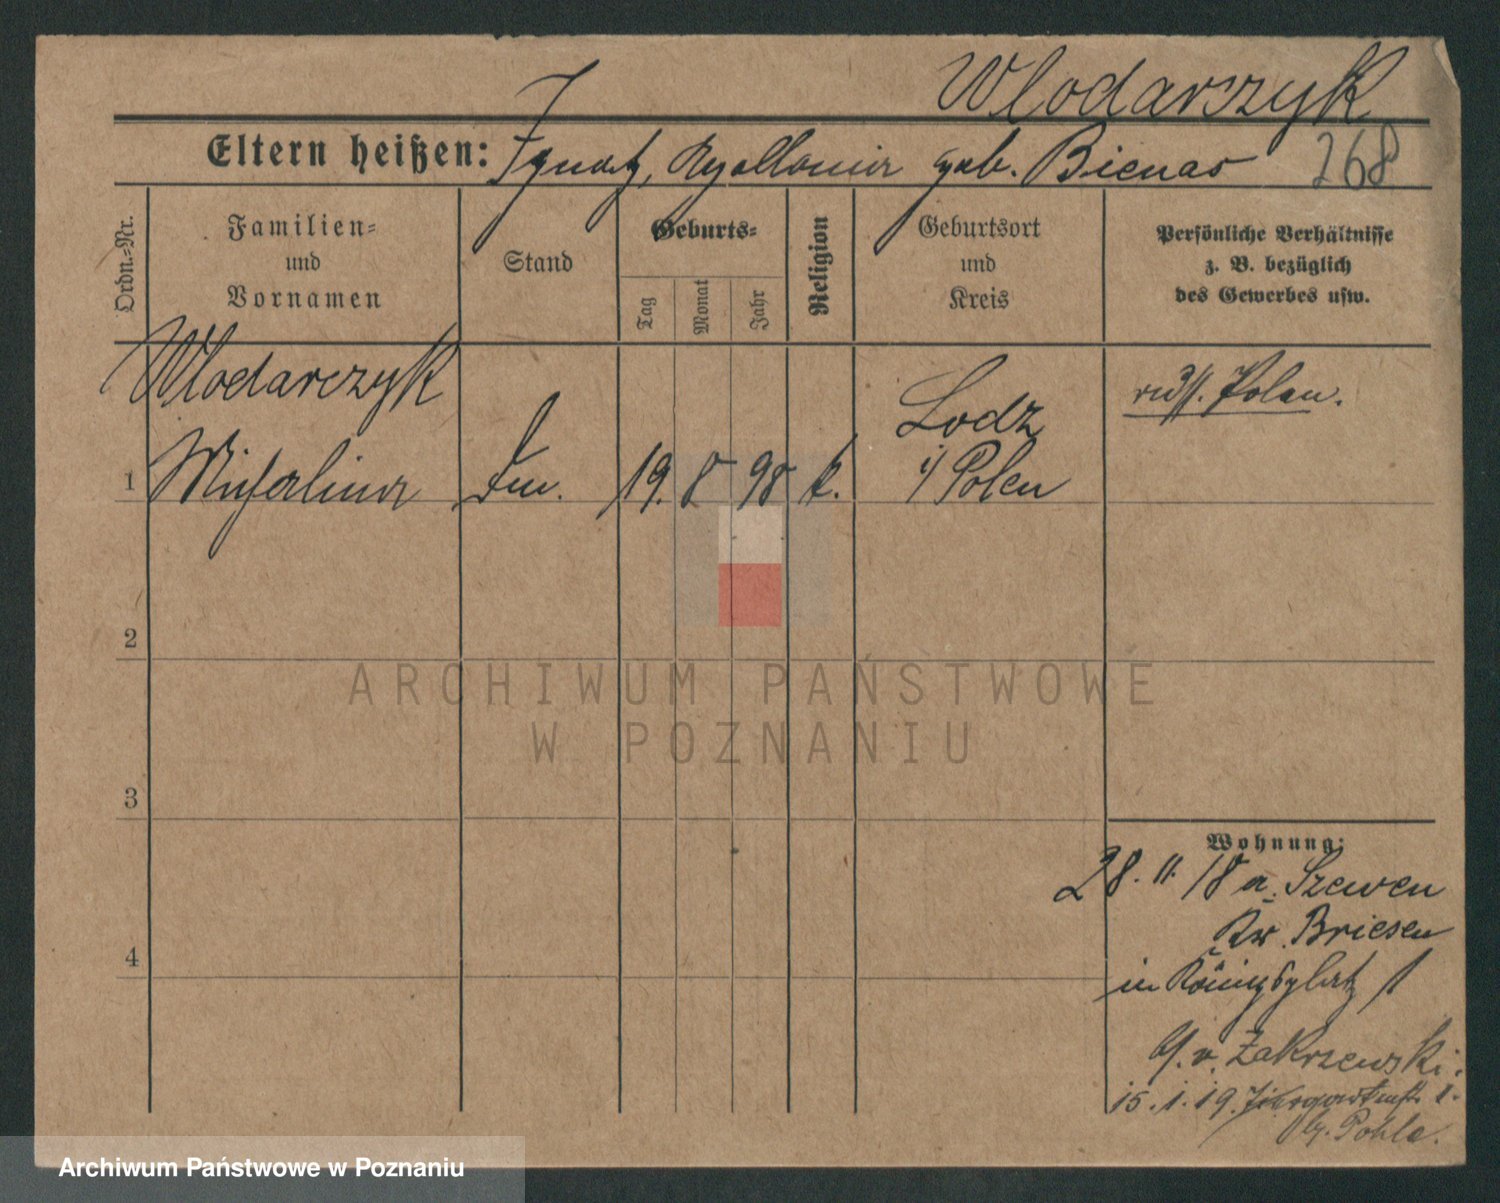 Wlodarczyk
Eltern heißen: Ignatz, Apollonia geb. Bienas 268
Ordn.-Nr.
Familien- und Vornamen
Stand
Geburts-
Tag
Monat
Jahr
Religion
Geburtsort und Kreis
Persönliche Verhältnisse
z. B. bezüglich
des Gewerbes usw.
Wlodarczyk
russ. Polen.
Lodz
1 Michalina
19. 8 98 k. i/ Polen
2
3
4
ARCHIWUM PAŃSTWOWE
W POZNANIU
Wohnung:
28. 11. 18 a. Szewen
Kr. Briesen
in Königsplatz 1
b/. v. Zakrzewski.
15. 1. 19.
b/. Pohle.
Archiwum Państwowe w Poznaniu